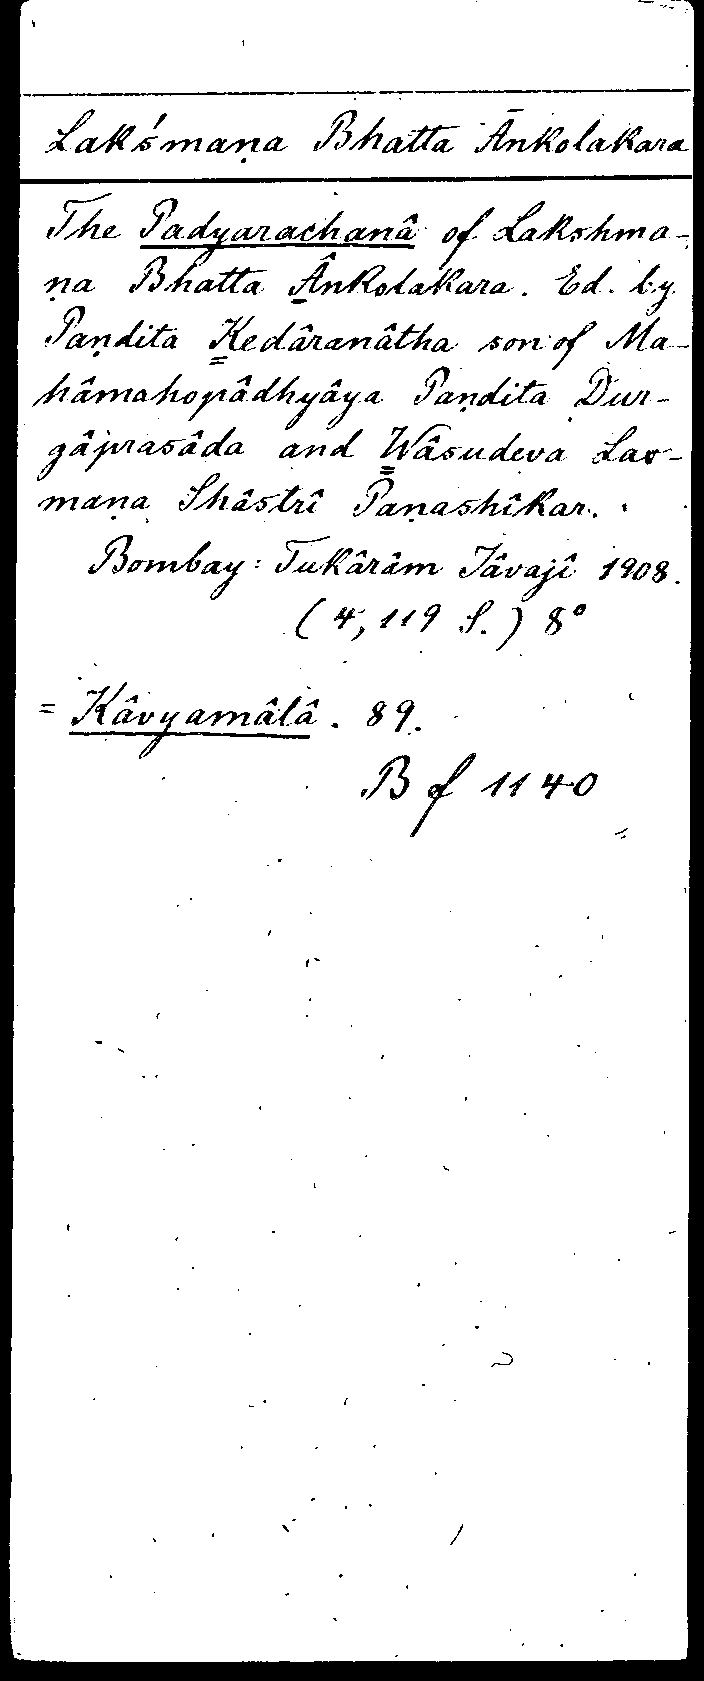 Lakśmaṇa Bhatta Ānkolakara
The Padyarachanâ of Lakshma-
ṇa Bhatta Ânkolakara. Ed. by
Paṇdita Kedâranâtha son of Ma-
hâmahopâdhyâya Paṇdita Dur-
gâprasâda and Wâsudeva Lax-
maṇa Shâstrî Paṇashîkar.
Bombay: Tukârâm Jâvajî 1908.
(4, 119 S.) 8°
= Kâvyamâlâ. 89.
Bf 1140